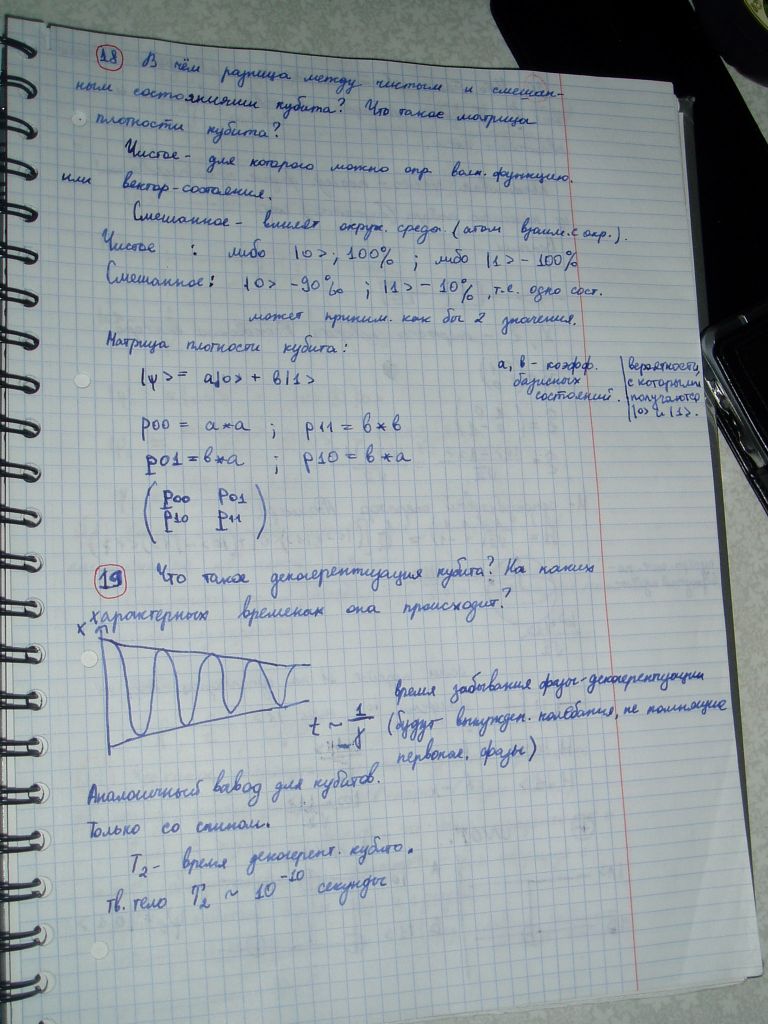 18 В чём разница между чистым и смешан-
ным состояниями кубита? Что такое матрица
плотности кубита?
Чистое - для которого можно опр. волн. функцию.
или вектор-состояния.
Смешанное - влияет окруж. среды. (атом взаим. с окр.).
Чистое : либо |0>; 100% ; либо |1> - 100%
Смешанное: |0> - 90% ; |1> - 10%, т.е. одно сост.
может приним. как бы 2 значения.
Матрица плотности кубита:
|ψ> = a|0> + b|1>
a, b - коэфф.
базисных
состояний.
вероятности,
с которыми
получаются
|0> и |1>.
ρ00 = a*a ; ρ11 = b*b
ρ01 = b*a ; ρ10 = b*a
ρ00 ρ01
ρ10 ρ11
19 Что такое декогерентизация кубита? На каких
характерных временах она происходит?
x
t ~ 1/γ
время забывания фазы - декогерентизации
(будут вынужден. колебания, не помнящие
первонач. фазы)
Аналогичный вывод для кубитов.
Только со спином.
T2 - время декогерент. кубита.
тв. тело T2 ~ 10^-10 секунды